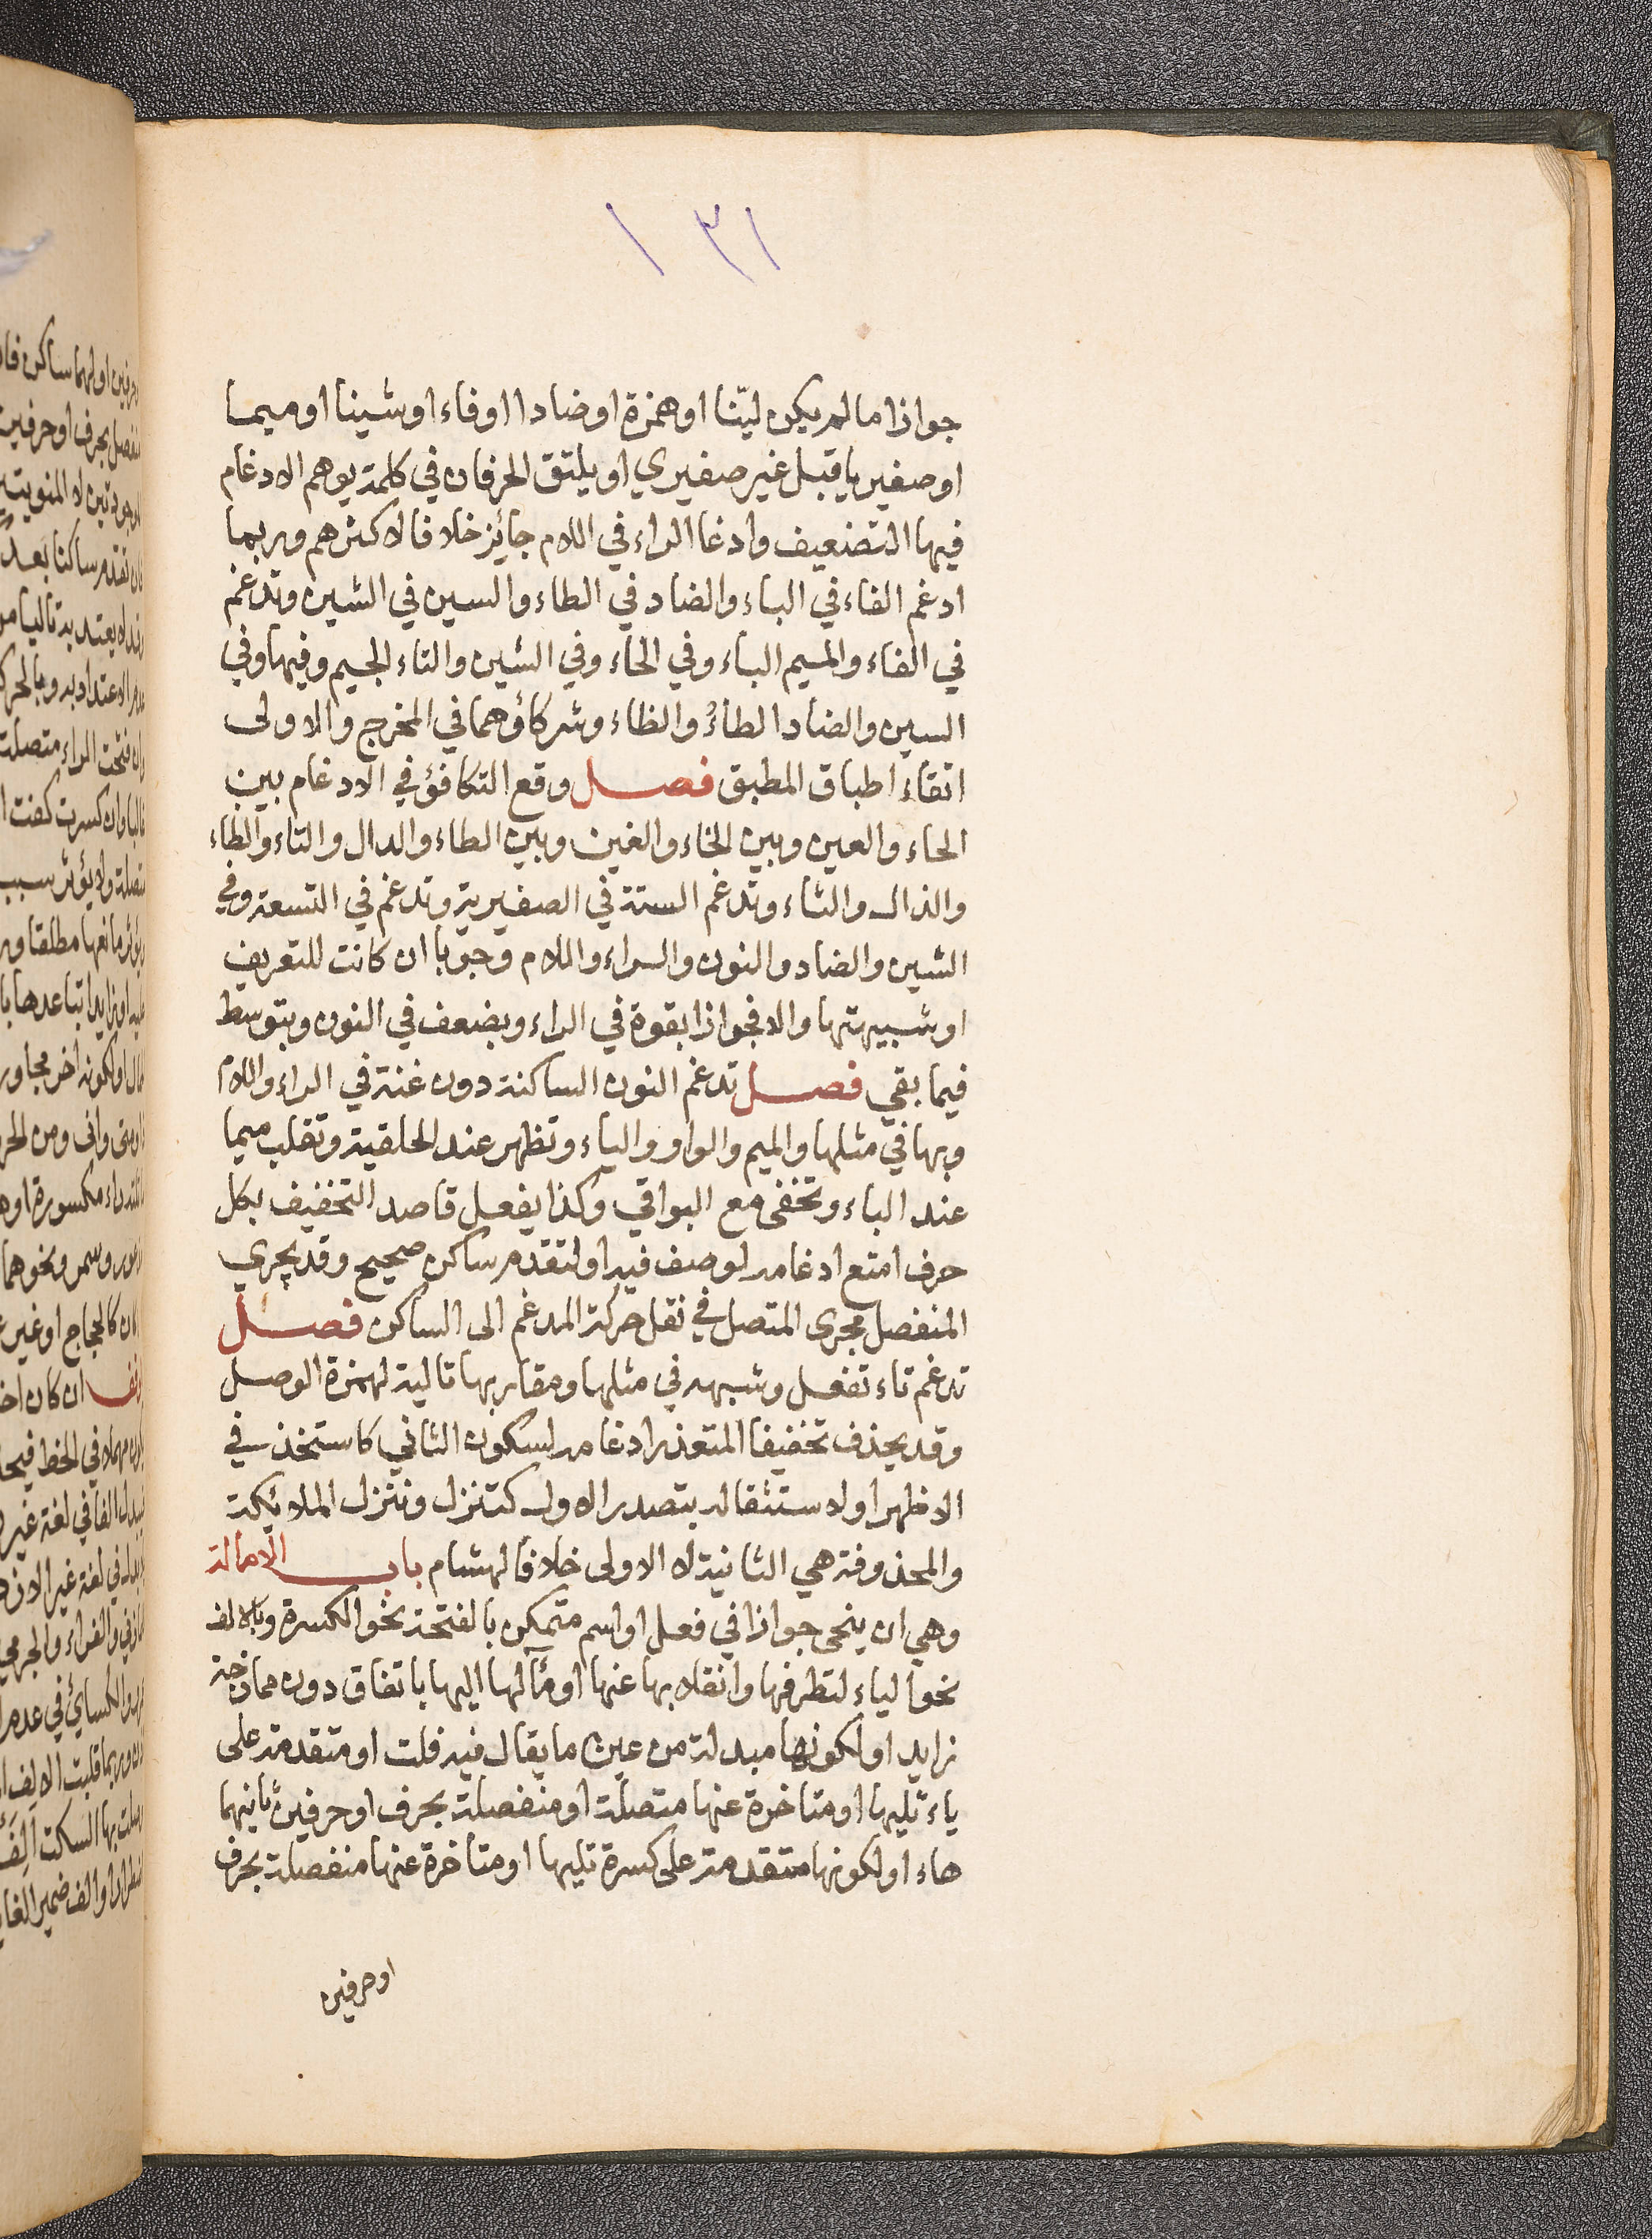 ١٣١
جوازا ما لم يكن ليّنا او همزة او ضادا او فاء او شينا او ميما
او صفيريا قبل غير صفيري او يلتق الحرفان في كلمة يوهم الادغام
فيها التضعيف وادغا الراء في اللام جائز خلافا لاكثرهم وربما
ادغم الفاء في الباء والضاد في الطاء والسين في الشين وتدغم
في الفاء والميم الباء وفي الحاء وفي الشين والتاء الجيم وفيها وفي
السين والضاد الطاءُ والظاء وشركاؤهما في المخرج والاولى
اتقاء اطباق المطبق فصل وقع التكافؤ في الادغام بين
الحاء والعين وبين الخاء والغين وبين الطاء والدال والتاء والظاء
والذال والثاء وتدغم الستة في الصفيرية وتدغم في التسعة وفي
الشين والضاد والنون والراء واللام وجوبا ان كانت للتعريف
او شبيهتها والا فجوازا بقوة في الراء وبضعف في النون وبتوسط
فيما بقي فصل تدغم النون الساكنة دون غنة في الراء واللام
وبها في مثلها والميم والواو والياء وتظهر عند الحلقية وتقلب ميما
عند الباء وتخفى مع البواقي وكذا يفعل قاصد التخفيف بكل
حرف امتع ادغامه لوصف فيه او لتقدم ساكن صحيح وقد يجري
المنفصل مجرى المتصل في نقل حركة المدغم الى الساكن فصل
تدغم تاء تفعل وشبهه في مثلها ومقاربها تالية لهمزة الوصل
وقد يحذف تخفيفا المتعذر ادغامه لسكون الثاني كاستخذ في
الاظهر او لاستثقاله بتصدر الاول كتنزل ونتزل الملائكة
والمحذوفة هي الثانية لا الاولى خلافا لهشام باب الامالة
وهي ان ينحى جوازا في فعل او اسم متمكن بالفتحة نحو الكسرة وبالالف
نحو الياء لتطرفها وانقلابها عنها او مآلها اليها باتفاق دون ممازجة
زايد او لكونها مبدلة من عين ما يقال فيه فلت او متقدمة على
ياء تليها او متاخرة عنها متصلة او منفصلة بحرف او حرفين ثانيهما
هاء او لكونها متقدمة على كسرة تليها او متاخرة عنها منفصلة بحرف
او حرفين